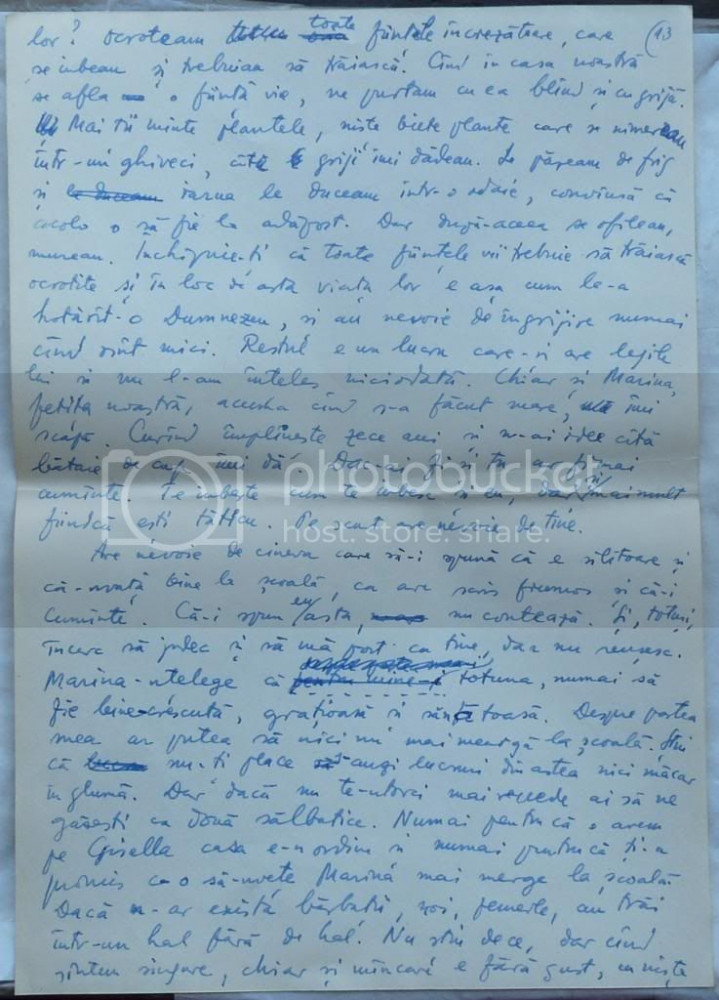 13
lor? ocroteam toate ființele încrezătoare, care
se iubeau și trebuiau să trăiască. Cînd în casa noastră
se afla o ființă vie, ne purtam cu ea blînd și cu grijă.
Mai ții minte plantele, niște biete plante care se nimereau
într-un ghiveci, cîte griji îmi dădeau. Le păzeam de frig
și iarna le duceam într-o odaie, convinsă că
acolo o să fie la adăpost. Dar după-aceea se ofileau,
mureau. Închipuie-ți că toate ființele vii trebuie să trăiască
ocrotite și în loc de asta viața lor e așa cum le-a
hotărît-o Dumnezeu, și au nevoie de îngrijire numai
cînd sînt mici. Restul e un lucru care-și are legile
lui și nu l-am înțeles niciodată. Chiar și Marina,
fetița noastră, acuma cînd s-a făcut mare, îmi
scapă. Curînd împlinește zece ani și n-ai idee cîtă
bătaie de cap îmi dă. Dac-ai fi și tu ar fi mai
cuminte. Te iubește cum te iubesc și eu, dar și mai mult
fiindcă ești tăticu. Pe scurt are nevoie de tine.
Are nevoie de cineva care să-i spună că e silitoare și
că-nvață bine la școală, ca are scris frumos și că-i
cuminte. Că-i spun eu asta, nu contează. Și, totuși,
încerc să judec și să mă port ca tine, dar nu reușesc.
Marina-nțelege că totuna, numai să
fie bine-crescută, grațioasă și sănătoasă. Despre partea
mea ar putea să nici nu mai meargă la școală. Știu
că nu-ți place să auzi lucruri din astea nici măcar
în glumă. Dar dacă nu te-ntorci mai repede ai să ne
găsești ca două sălbatice. Numai pentru că o avem
pe Gisella casa e-n ordine și numai pentru că ți-a
promis c-o să-nvețe Marina mai merge la școală
Dacă n-ar exista bărbații, noi, femeile, am trăi
într-un hal fără de hal. Nu știu de ce, dar cînd
sîntem singure, chiar și mîncarea e fără gust, ca niște
photobucket
host. store. share.